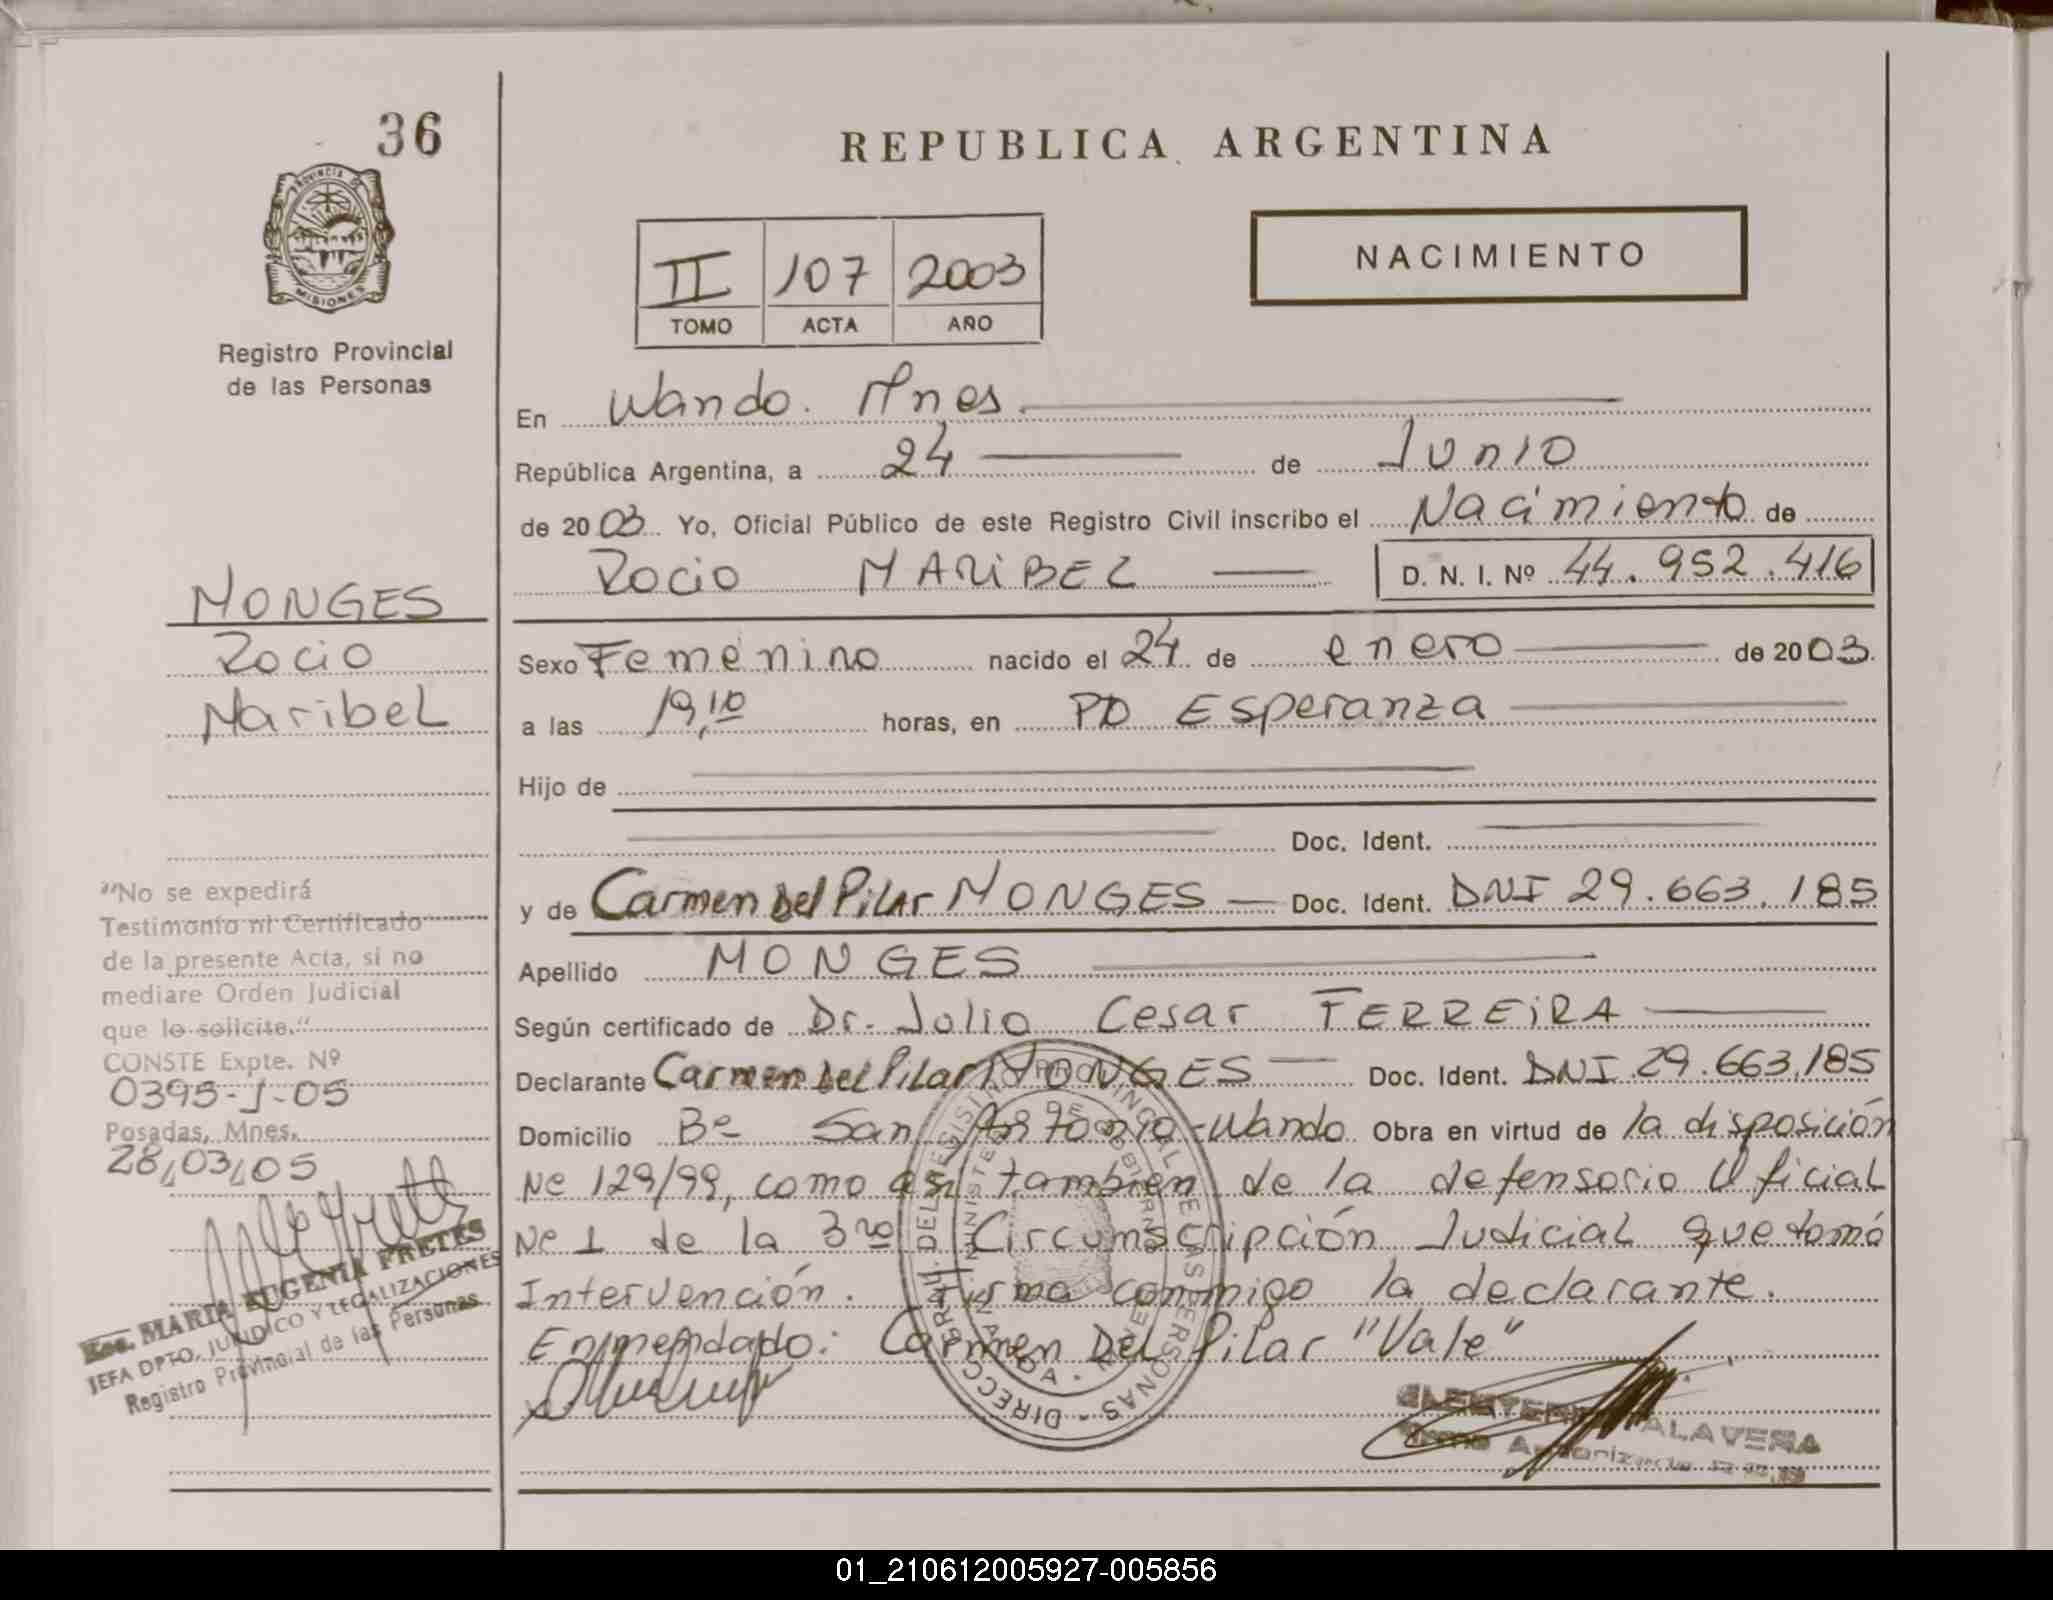 36
PROVINCIA DE
MISIONES
Registro Provincial
de las Personas
REPUBLICA ARGENTINA
NACIMIENTO
II 107 2003
TOMO ACTA AÑO
En Wando. Mnes.
República Argentina, a 24 de Junio
de 2003 Yo, Oficial Público de este Registro Civil inscribo el Nacimiento de
Rocio MARIBEL D. N. I. Nº 44.952.416
MONGES
Rocio
Maribel
Sexo Femenino nacido el 24 de enero de 2003.
a las 19,10 horas, en PTO Esperanza
Hijo de
Doc. Ident.
y de Carmen Del Pilar MONGES Doc. Ident. DNI 29.663.185
Apellido MONGES
Según certificado de Dr. Julio Cesar FERREIRA
Declarante Carmen Del Pilar MONGES Doc. Ident. DNI 29.663.185
Domicilio Bº San Antonio-Wando Obra en virtud de la disposición
Nº 129/99, como así tambien de la defensoria Oficial
Nº 1 de la 3ra Circumscripción Judicial que tomó
Intervención. Firma conmigo la declarante.
Enmendado: Carmen Del Pilar "Vale"
"No se expedirá
Testimonio ni Certificado
de la presente Acta, si no
mediare Orden Judicial
que lo solicite."
CONSTE Expte. Nº
0395-J-05
Posadas, Mnes.
28/03/05
Esc. MARIA EUGENIA FRETES
JEFA DPTO. JURIDICO Y LEGALIZACIONES
Registro Provincial de las Personas
DIRECC. GRAL. DEL REGISTRO PROVINCIAL DE LAS PERSONAS
MINISTERIO DE GOBIERNO
TALAVERA
01_210612005927-005856